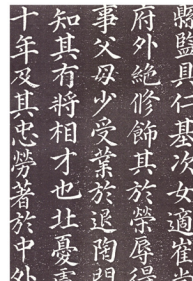 縣監具仁基次女適崔尚
府外絶修飾其於榮辱得
事父母少受業於退陶門
知其有將相才也壯憂虞
十年及其忠勞著於中外